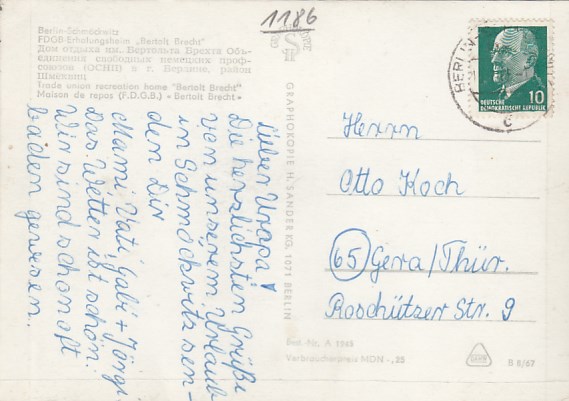 1186
Berlin-Schmöckwitz
FDGB-Erholungsheim „Bertolt Brecht"
Дом отдыха им. Бертольта Брехта Объ-
единения свободных немецких проф-
союзов (ОСНП) в г. Берлине, район
Шмёквиц
Trade union recreation home "Bertolt Brecht"
Maison de repos (F.D.G.B.) «Bertolt Brecht»
Lieber Uropa!
Die herzlichsten Grüße
von unserem Urlaub
in Schmöckwitz sen-
den Dir
Mami, Vati, Gabi + Jörgi
Das Wetter ist schön.
Wir sind schon oft
baden gewesen.
GRAPHOKOPIE H. SANDER KG, 1071 BERLIN
BERLIN
DEUTSCHE
DEMOKRATISCHE REPUBLIK
10
Herrn
Otto Koch
65 Gera/Thür.
Roschützer Str. 9
Best.-Nr. A 1145
Verbraucherpreis MDN -,25
B 8/67